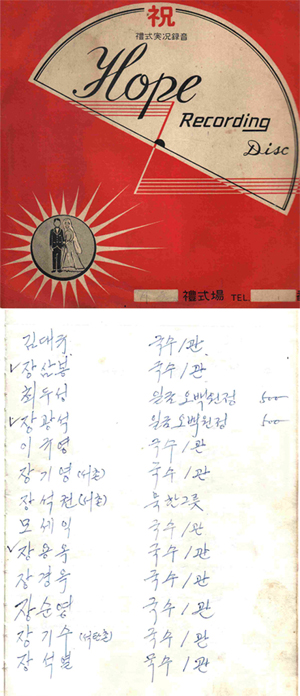 祝
禮式実況録音
Hope
Recording
Disc
禮式場 TEL
김대
국수 1관
✓장삼봉
국수 1관
최두성
일금 오백원정 500
✓장광석
일금 오백원정 500
이 영
국수 1관
장기영 (서촌)
국수 1관
장석천 (서촌)
묵 한그릇
모세익
국수 1관
✓장용옥
국수 1관
장경욱
국수 1관
장순영
국수 1관
장기수
국수 1관
장석열
국수 1관